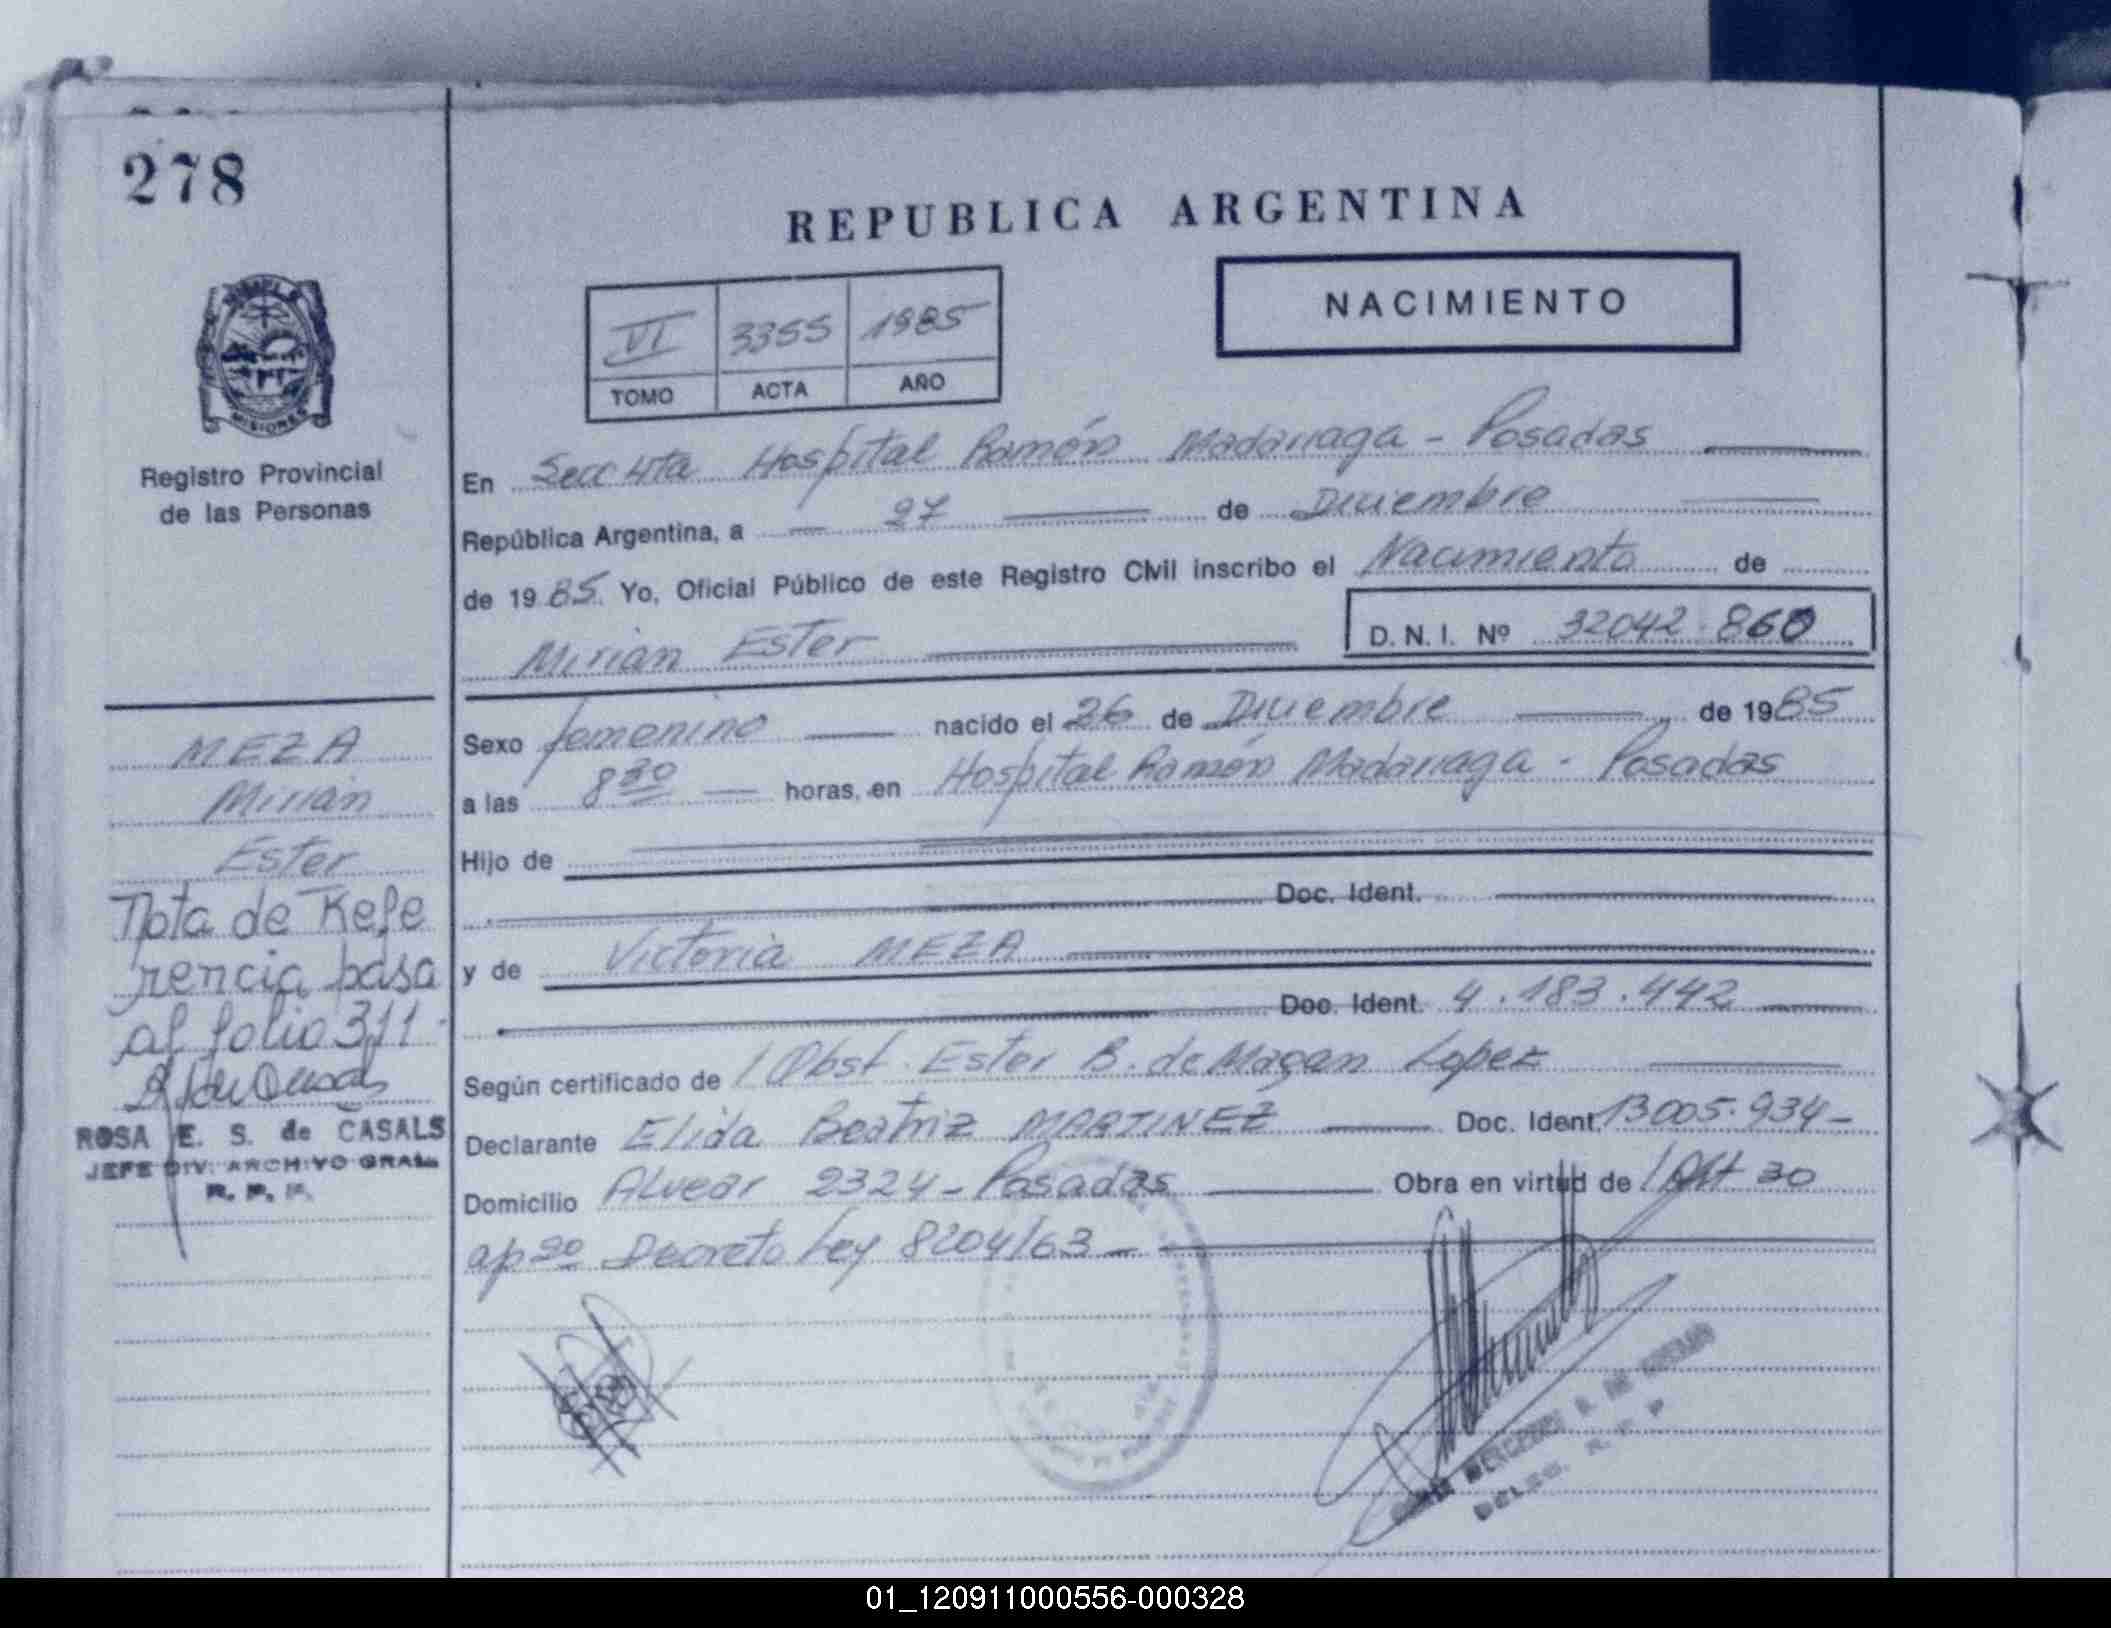 278
REPUBLICA ARGENTINA
NACIMIENTO
VI 3355 1985
TOMO ACTA AÑO
MISIONES
Registro Provincial
de las Personas
En Secc 4ta Hospital Ramón Madariaga - Posadas
República Argentina, a 27 de Diciembre
de 1985. Yo, Oficial Público de este Registro Civil inscribo el Nacimiento de
Mirian Ester D.N.I. Nº 32042.860
Sexo femenino nacido el 26 de Diciembre de 1985
a las 8 30 horas, en Hospital Ramón Madariaga - Posadas
Hijo de
Doc. Ident.
y de Victoria MEZA
Doc. Ident. 4.183.442
Según certificado de Obst. Ester B. de Lopez
Declarante Elida Beatriz MARTINEZ Doc. Ident. 13005.934-
Domicilio Alvear 2324 - Posadas Obra en virtud de Art 30
ap 2o Decreto Ley 8204/63 -
MEZA
Mirian
Ester
Nota de Refe
rencia pasa
al folio 311.
ROSA E. S. de CASALS
JEFE DIV. ARCHIVO GRAL
R. P. P.
DELEG. R. P. P
01_120911000556-000328